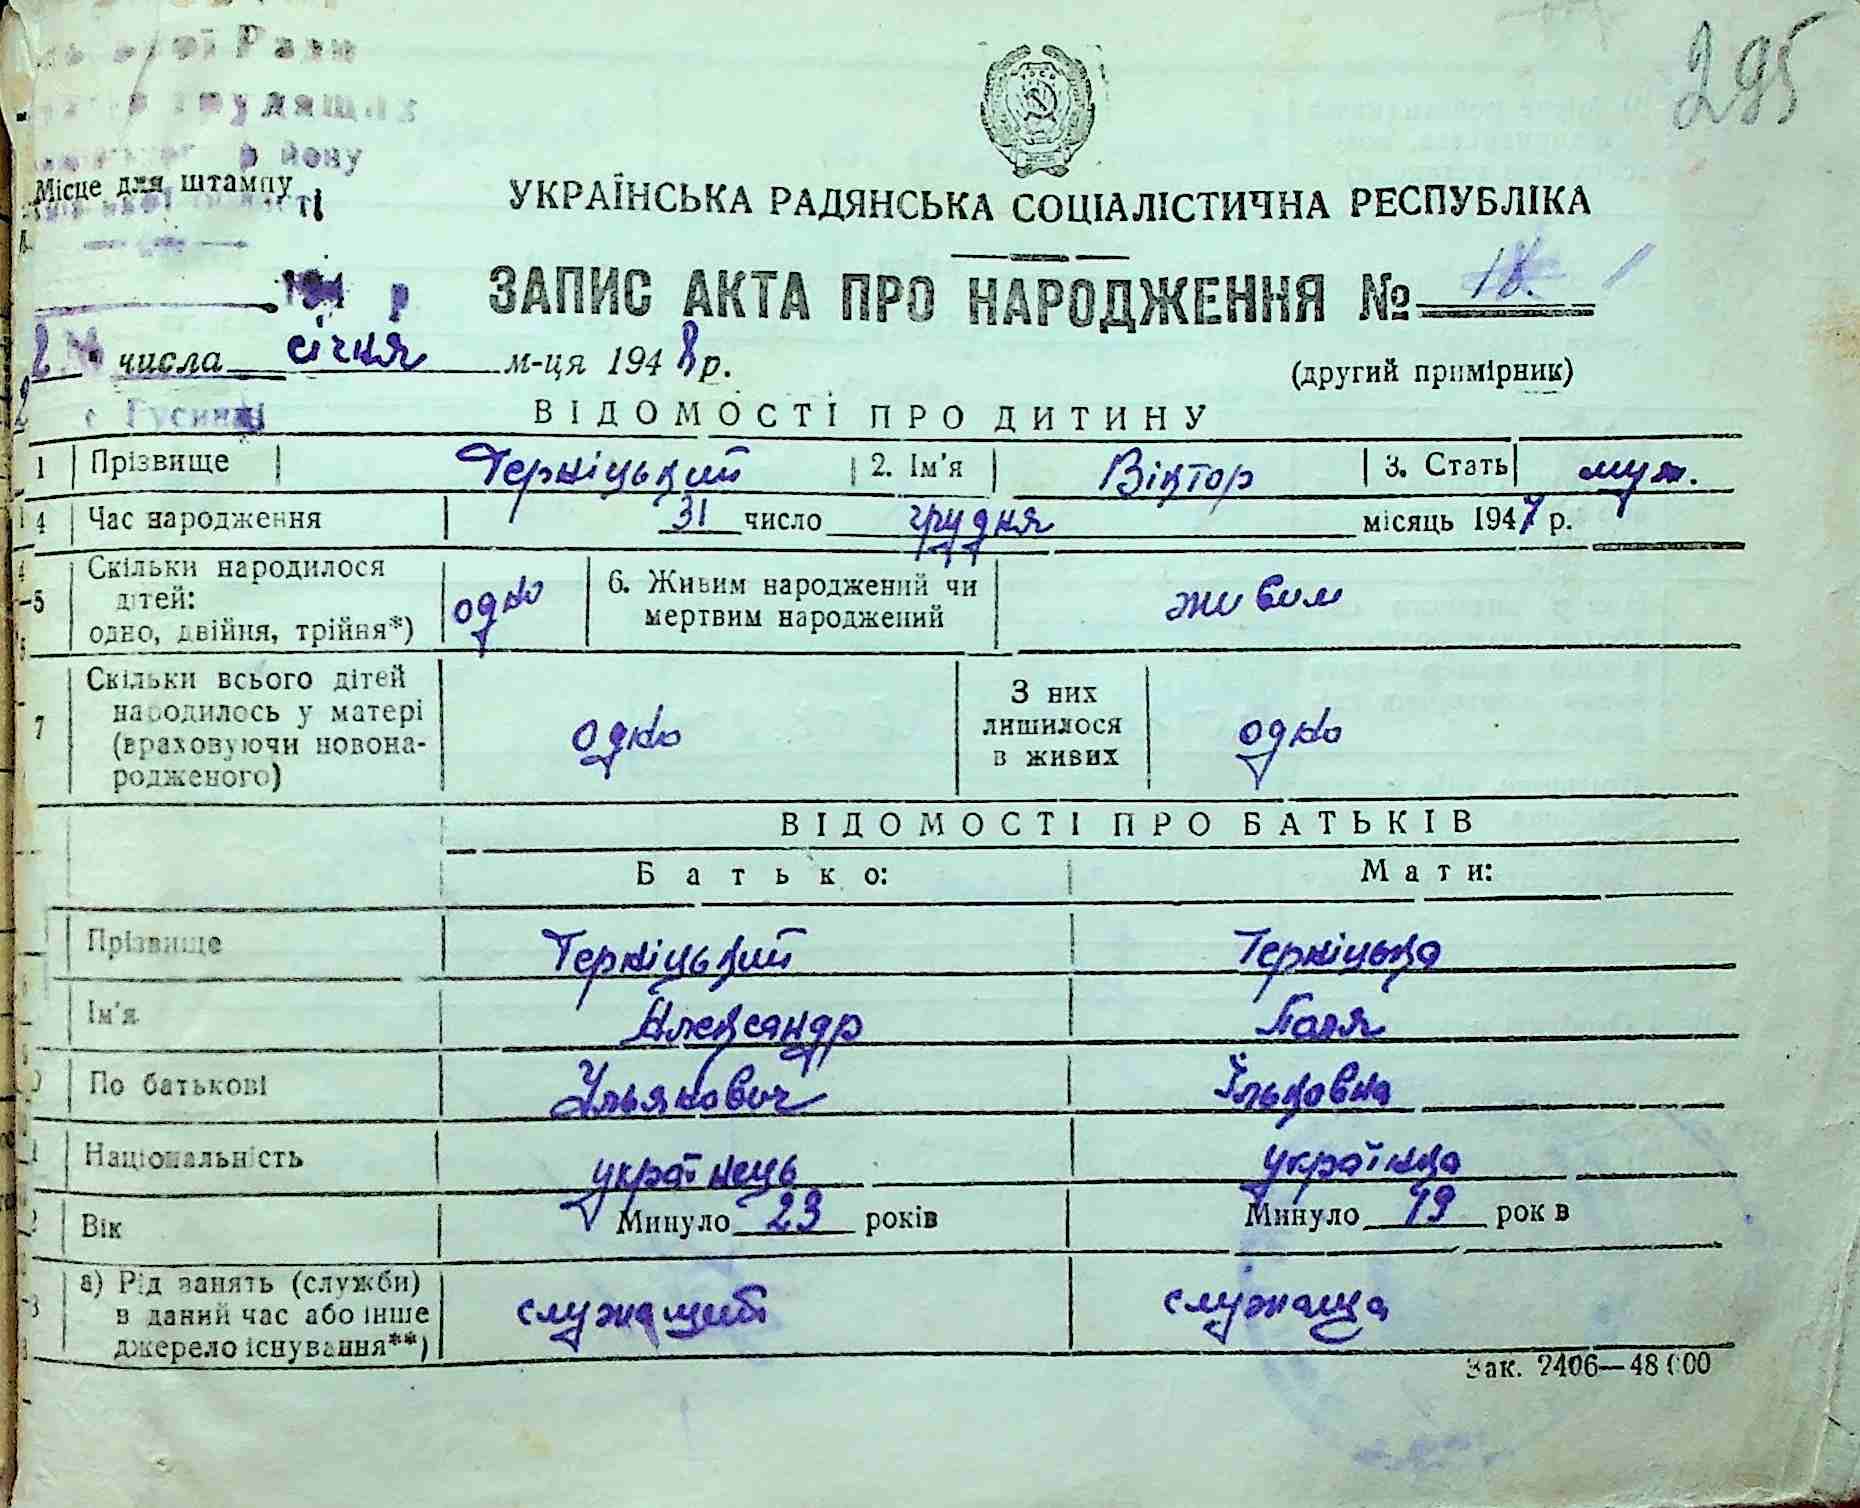 295
Ради
трудящих
району
Місце для штампу
УКРАЇНСЬКА РАДЯНСЬКА СОЦІАЛІСТИЧНА РЕСПУБЛІКА
ЗАПИС АКТА ПРО НАРОДЖЕННЯ №
194 р
2 числа січня м-ця 1948 р.
(другий примірник)
с Гусинці
ВІДОМОСТІ ПРО ДИТИНУ
1 Прізвище Терніцький 2. Ім'я Віктор 3. Стать муж.
4 Час народження 31 число грудня місяць 1947 р.
5 Скільки народилося дітей: одно, двійня, трійня*) одно 6. Живим народжений чи мертвим народжений живим
7 Скільки всього дітей народилось у матері (враховуючи новонародженого) одно З них лишилося в живих одно
ВІДОМОСТІ ПРО БАТЬКІВ
Батько: Мати:
Прізвище Терніцький Терніцька
Ім'я Александр Галя
По батькові Ульянович Ільковна
Національність українець українка
Вік Минуло 23 років Минуло 19 рок в
а) Рід занять (служби) в даний час або інше джерело існування**) служащий служаща
Зак. 2406—48 000